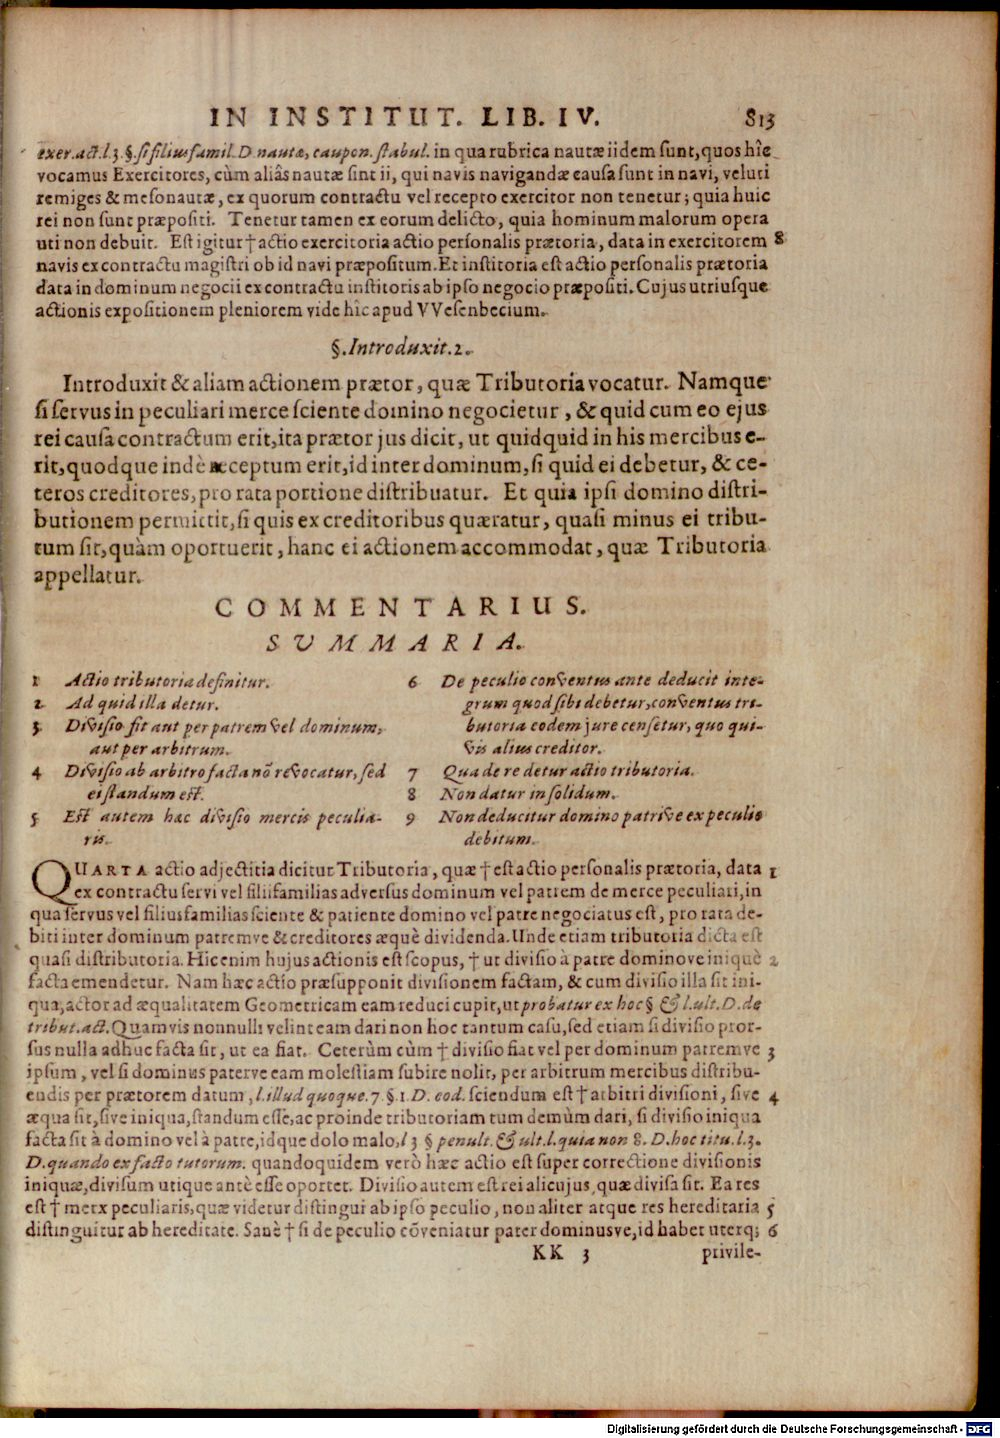 IN INSTITUT. LIB. IV. 813
exer. act. l. 3. §. si filius famil. D. nautæ, caupon. stabul. in qua rubrica nautæ iidem sunt, quos hîc
vocamus Exercitores, cùm aliâs nautæ sint ii, qui navis navigandæ causa sunt in navi, veluti
remiges & mesonautæ, ex quorum contractu vel recepto exercitor non tenetur; quia huic
rei non sunt præpositi. Tenetur tamen ex eorum delicto, quia hominum malorum opera
uti non debuit. Est igitur † actio exercitoria actio personalis prætoria, data in exercitorem 8
navis ex contractu magistri ob id navi præpositum. Et institoria est actio personalis prætoria
data in dominum negocii ex contractu institoris ab ipso negocio præpositi. Cujus utriusque
actionis expositionem pleniorem vide hîc apud VVesenbecium.
§. Introduxit. 2.
Introduxit & aliam actionem prætor, quæ Tributoria vocatur. Namque
si servus in peculiari merce sciente domino negocietur, & quid cum eo ejus
rei causa contractum erit, ita prætor jus dicit, ut quidquid in his mercibus e-
rit, quodque indè receptum erit, id inter dominum, si quid ei debetur, & ce-
teros creditores, pro rata portione distribuatur. Et quia ipsi domino distri-
butionem permittit, si quis ex creditoribus quæratur, quasi minus ei tribu-
tum sit, quàm oportuerit, hanc ei actionem accommodat, quæ Tributoria
appellatur.
COMMENTARIUS.
SUMMARIA.
1 Actio tributoria definitur.
2 Ad quid illa detur.
3 Divisio fit aut per patrem vel dominum,
aut per arbitrum.
4 Divisio ab arbitro facta nõ revocatur, sed
ei standum est.
5 Est autem hæc divisio mercis peculia-
ris.
6 De peculio conventus ante deducit inte-
grum quod sibi debetur, conventus tri-
butoria eodem jure censetur, quo qui-
vis alius creditor.
7 Qua de re detur actio tributoria.
8 Non datur in solidum.
9 Non deducitur domino patrive ex peculio
debitum.
QUARTA actio adjectitia dicitur Tributoria, quæ † est actio personalis prætoria, data 1
ex contractu servi vel filiifamilias adversus dominum vel patrem de merce peculiari, in
qua servus vel filiusfamilias sciente & patiente domino vel patre negociatus est, pro rata de-
biti inter dominum patremve & creditores æquè dividenda. Unde etiam tributoria dicta est
quasi distributoria. Hic enim hujus actionis est scopus, † ut divisio à patre dominove iniquè 2
facta emendetur. Nam hæc actio præsupponit divisionem factam, & cum divisio illa sit ini-
qua, actor ad æqualitatem Geometricam eam reduci cupit, ut probatur ex hoc § & l. ult. D. de
tribut. act. Quamvis nonnulli velint eam dari non hoc tantum casu, sed etiam si divisio pror-
sus nulla adhuc facta sit, ut ea fiat. Ceterùm cùm † divisio fiat vel per dominum patremve 3
ipsum, vel si dominus paterve eam molestiam subire nolit, per arbitrum mercibus distribu-
endis per prætorem datum, l. illud quoque. 7. §. 1. D. eod. sciendum est † arbitri divisioni, sive 4
æqua sit, sive iniqua, standum esse, ac proinde tributoriam tum demùm dari, si divisio iniqua
facta sit à domino vel à patre, idque dolo malo, l 3 § penult. & ult. l. quia non 8. D. hoc titu. l. 3.
D. quando ex facto tutorum. quandoquidem verò hæc actio est super correctione divisionis
iniquæ, divisum utique antè esse oportet. Divisio autem est rei alicujus, quæ divisa sit. Ea res
est † merx peculiaris, quæ videtur distingui ab ipso peculio, non aliter atque res hereditaria 5
distinguitur ab hereditate. Sanè † si de peculio cõveniatur pater dominusve, id habet uterq; 6
KK 3 privile-
Digitalisierung gefördert durch die Deutsche Forschungsgemeinschaft - DFG